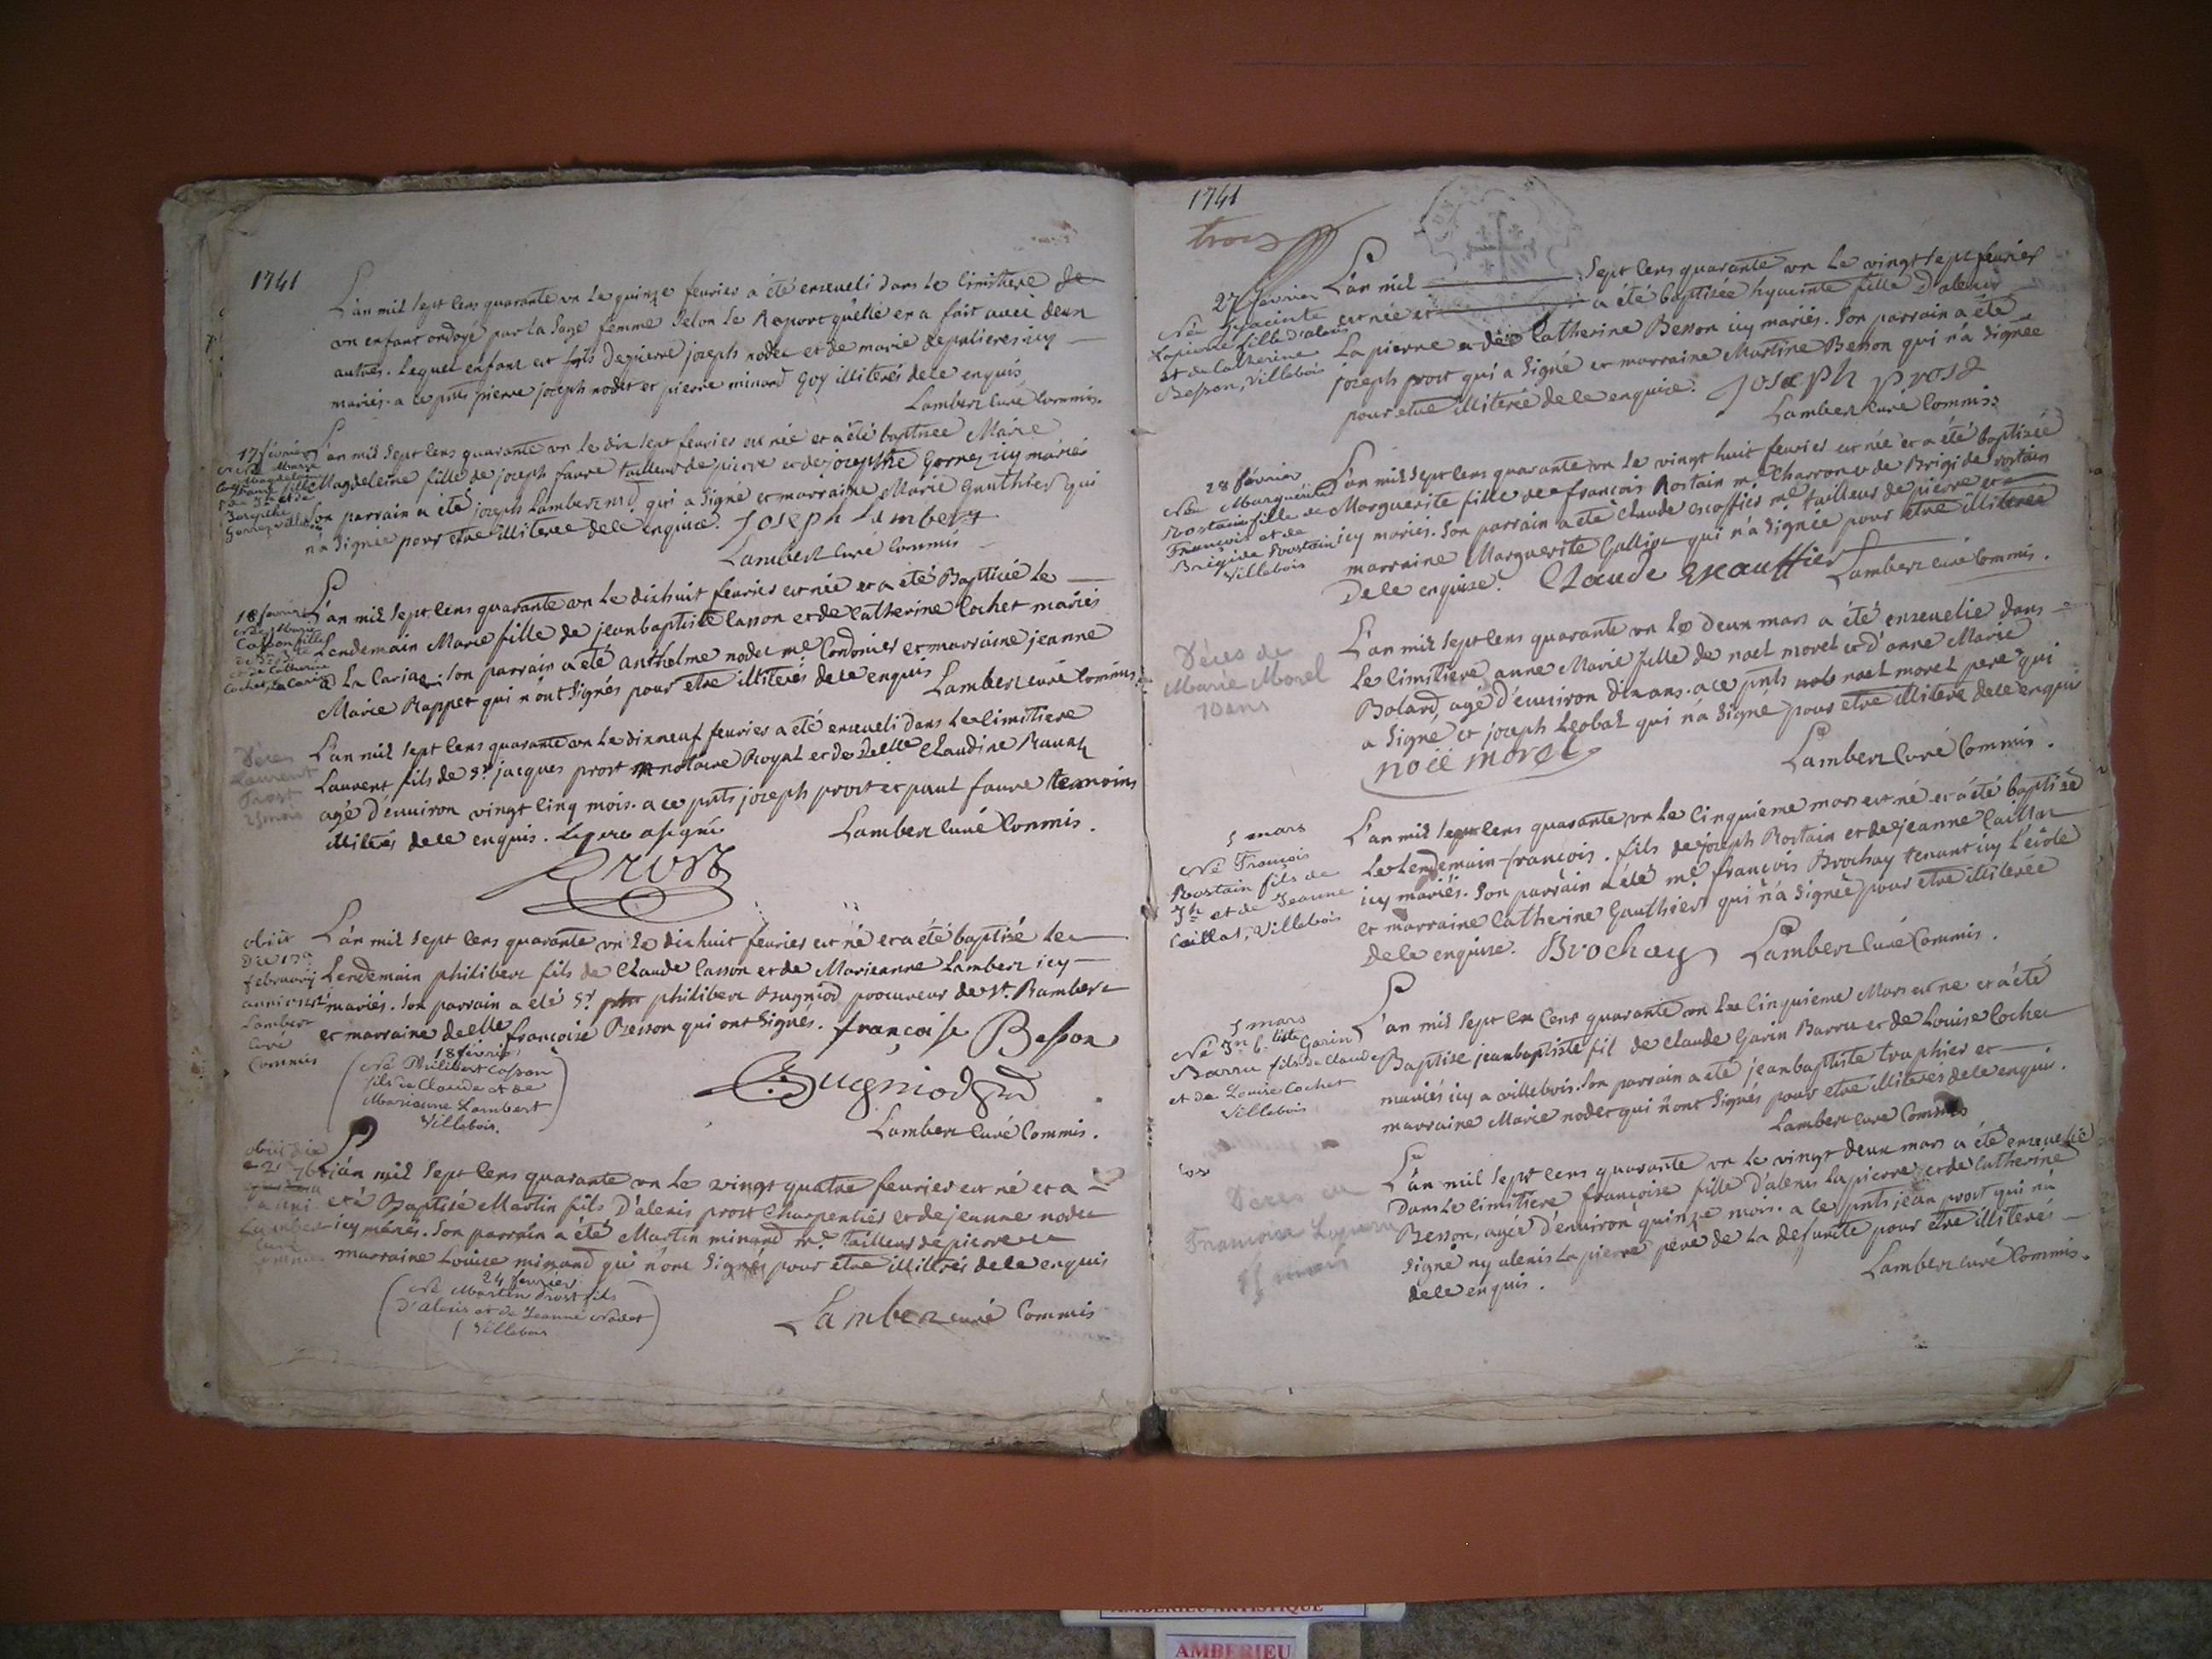 1741
L'an mil sept cens quarante un le quinze fevrier a été enseveli dans le cimitiere de
un enfant ondoyé par la sage femme selon le raport quelle en a fait avec deux
autres. Lequel enfant est fils de pierre joseph nodet et de marie depulieres icy
mariés. a ce pnts pierre joseph nodet et pierre minand illiterés de ce enquis
Lambert curé Commis.
17 février
Née Marie
Magdelaine
Faure fille
de Jh et de
Josephe
Gornez, Villebois
L'an mil sept cens quarante un le dix sept fevrier est née et a été baptisee Marie
Magdeleine fille de joseph faure tailleur de pierre et de josephte Gornez icy mariés
son parrain a été joseph Lambert md. qui a signé et marraine Marie Gauthier qui
n'a signée pour etre illiteree de ce enquise. Joseph Lambert
Lambert Curé Commis
18 février
Née Marie
Casson fille
de Jn Bte
et de Catherine
Cochet, La Cariaz
L'an mil sept cens quarante un le dixhuit fevrier est née et a été Baptisée le
Lendemain Marie fille de jean baptiste Casson et de Catherine Cochet mariés
a La Cariaz. son parrain a été anthelme nodet me Cordonier et marraine jeanne
Marie Rappet qui n'ont signés pour etre illiterés de ce enquis Lambert curé Commis.
Décès
Laurent
Prost
25 mois
L'an mil sept cens quarante un le dixneuf fevrier a été enseveli dans le cimitiere
Laurent fils de Sr jacques prost notaire Royal et de delle Claudine Ravat
agé d'environ vingt cinq mois. a ce pnts joseph prost et paul faure temoins
illiterés de ce enquis. Le pere a signé Lambert Curé Commis.
Prost
obiit
Die 19a
februarij
anni 1741
Lambert
Curé
Commis
L'an mil sept cens quarante un le dixhuit fevrier est né et a été baptisé le
Lendemain philibert fils de Claude Casson et de Marieanne Lambert icy
mariés. son parrain a été Sr philibert Bugniod procureur de St. Rambert
et marraine delle françoise Besson qui ont signés. françoise Besson
(18 février
Né Philibert Casson
fils de Claude et de
Marianne Lambert
Villebois.)
Bugniod
Lambert Curé Commis.
obiit die
L'an mil sept cens quarante un le vingt quatre fevrier est né et a
eté Baptisé Martin fils D'alexis prost Charpentier et de jeanne nodet
icy mariés. Son parrain a été Martin minand me. tailleur de pierre et
marraine Louise minand qui n'ont signés pour etre illiterés de ce enquis
(24 février
Né Martin Prost fils
d'Alexis et de Jeanne Nodet
Villebois)
Lambert curé Commis
1741
trois
27 février
Née Hyacinte
Lapierre fille d'alexis
et de Catherine
Besson, Villebois
L'an mil sept cens quarante un le vingt sept fevrier
est née et a été baptisée hyacinte fille D'alexis
La pierre et de Catherine Besson icy mariés. Son parrain a été
joseph prost qui a signé et marraine Martine Besson qui n'a signée
pour etre illiterée de ce enquise. Joseph Prost
Lambert Curé Commis
28 février
Née Marguerite
Rostain fille de
François et de
Brigide Rostain
Villebois
L'an mil sept cens quarante un le vingt huit fevrier est née et a été baptisée
Marguerite fille de françois Rostain me Charron et de Brigide rostain
icy mariés. Son parrain a été Claude escoffier me tailleur de pierre et
marraine Marguerite Gallion qui n'a signée pour etre illiterée
de ce enquise. Claude Exauffier Lambert curé Commis.
Décès de
Marie Morel
10 ans
L'an mil sept cens quarante un le deux mars a été ensevelie dans
Le cimitiere anne Marie fille de noel morel et d'anne Marie
Bolard, agé d'environ dix ans. a ce pnts noel morel pere qui
a signé et joseph Leobal qui n'a signé pour etre illiteré de ce enquis
noël morel
Lambert Curé Commis.
5 mars
Né François
Rostain fils de
Jh et de Jeanne
Caillat, Villebois
L'an mil sept cens quarante un le cinquième mars est né et a été baptisé
Le Lendemain françois. fils de joseph Rostain et de jeanne Caillat
icy mariés. Son parrain a été me françois Brochay tenant icy L'école
et marraine Catherine Gauthier qui n'a signée pour etre illiterée
de ce enquise. Brochay Lambert Curé Commis.
5 mars
Né Jn Btiste Garin
Barru fils de Claude
et de Louise Cochet
Villebois
L'an mil sept cens quarante un Le cinquieme Mars est ne et a été
Baptise jean baptiste fil de Claude Garin Barru et de Louise Cochet
mariés icy a villebois. Son parrain a été jean baptiste truphier et
marraine Marie nodet qui n'ont signés pour etre illiteres de ce enquis.
Lambert Curé Commis
Décès de
Francoise Lapierre
15 mois
L'an mil sept cens quarante un le vingt deux mars a été ensevelie
Dans Le cimitiere françoise fille d'alexis La pierre et de Catherine
Besson, agée d'environ quinze mois. a ce pnts jean prost qui n'a
signé ny alexis La pierre père de La defunte pour etre illiterés
de ce enquis.
Lambert curé Commis.
AMBERIEU ARTISTIQUE
AMBERIEU